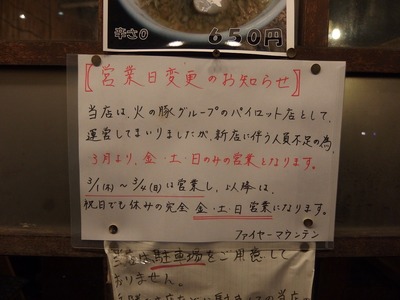 辛さ0 650円
【営業日変更のお知らせ】
当店は、火の豚グループのパイロット店として、
運営してまいりましたが、新店に伴う人員不足の為、
3月より、金・土・日のみの営業となります。
3/1(木)～3/4(日)は営業し、以降は、
祝日でも休みの完全 金・土・日 営業になります。
ファイヤーマウンテン
駐車場をご用意して
おりません。